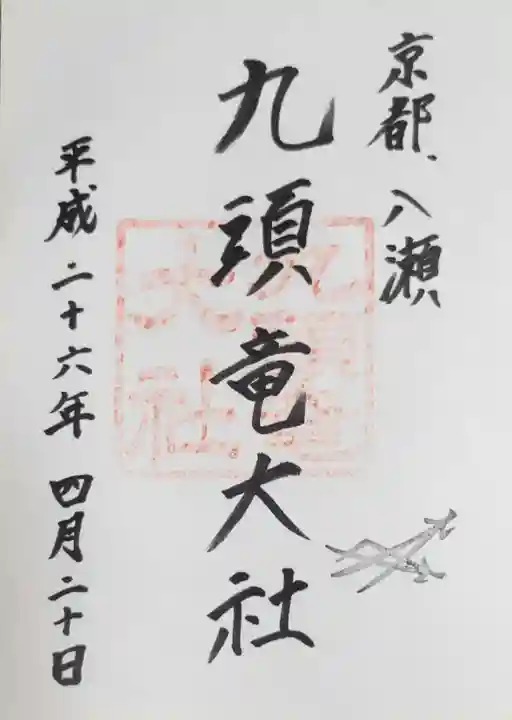 京都、八瀬
九頭竜大社
平成二十六年四月二十日